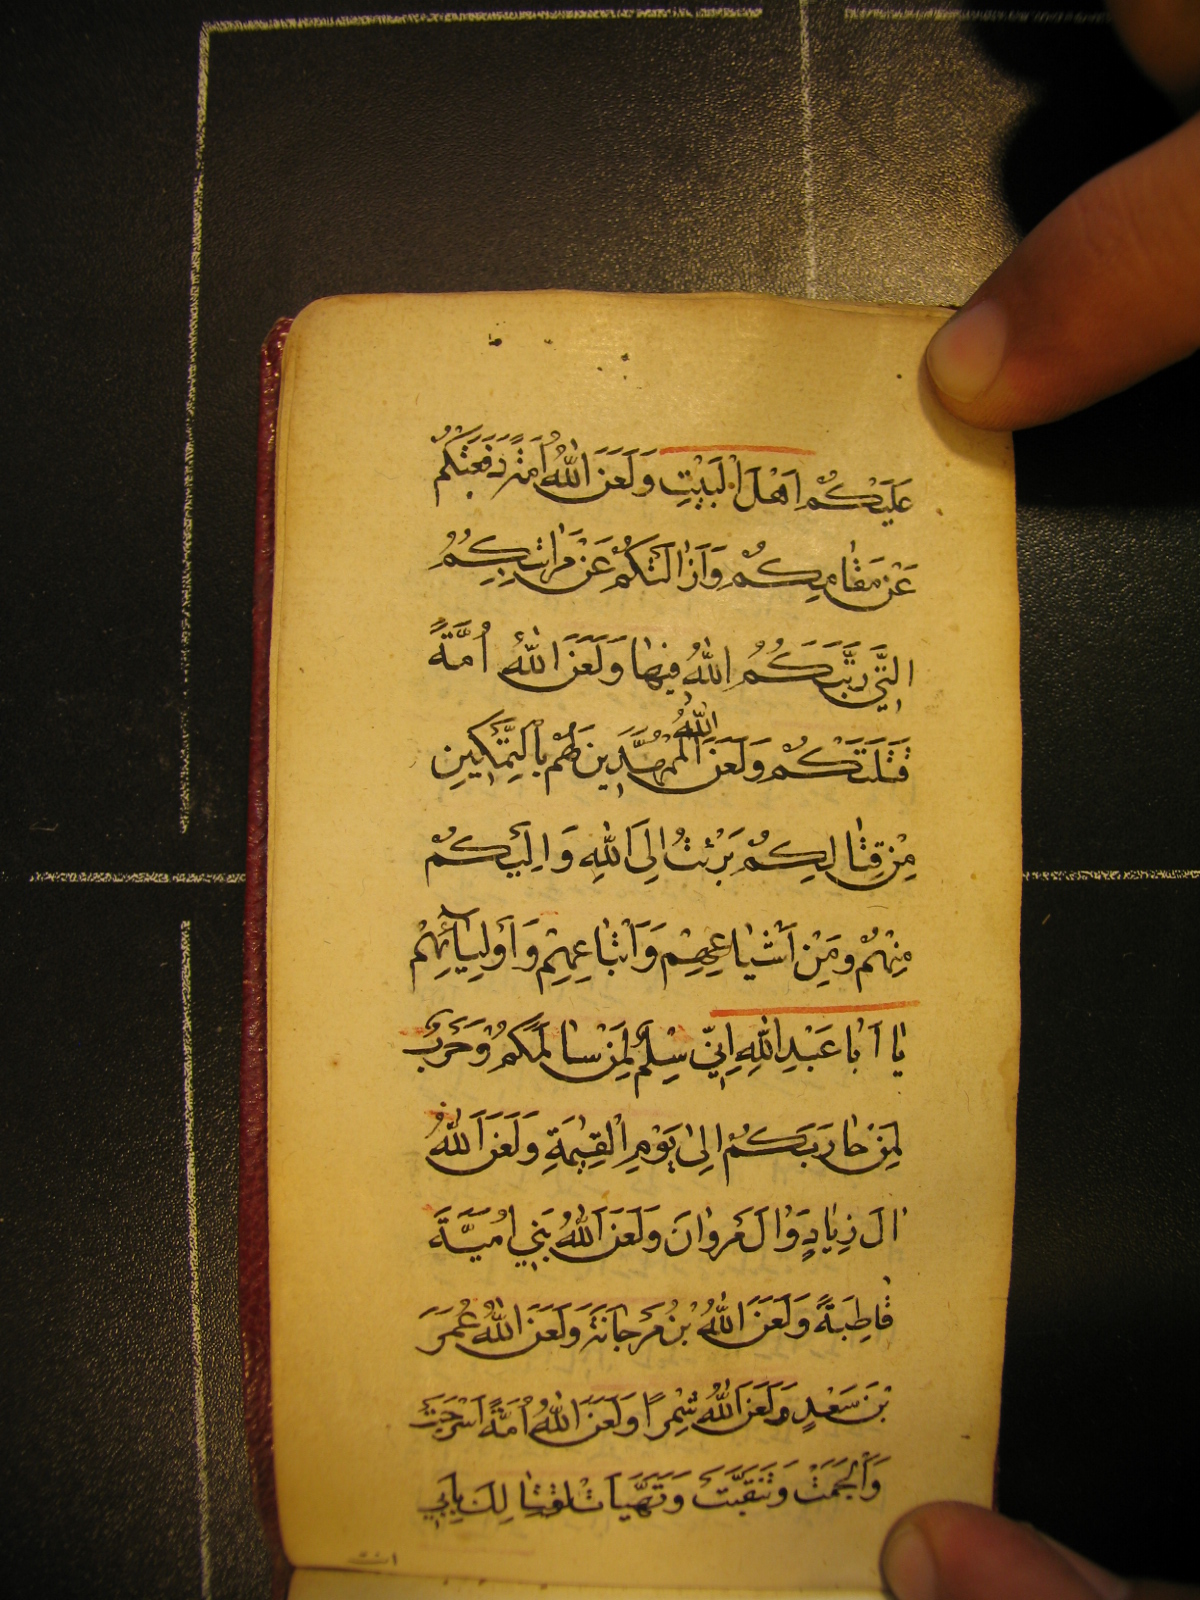 عَلَيْكُمْ اَهْلَ الْبَيْتِ وَلَعَنَ اللهُ اُمَّةً دَفَعَتْكُمْ
عَنْ مَقامِكُمْ وَاَزالَتْكُمْ عَنْ مَراتِبِكُمُ
الَّتي رَتَّبَكُمُ اللهُ فيها وَلَعَنَ اللهُ اُمَّةً
قَتَلَتْكُمْ وَلَعَنَ اللهُ الْمُمَهِّدينَ لَهُمْ بِالتَّمْكينِ
مِنْ قِتالِكُمْ بَرِئْتُ اِلَى اللهِ وَاِلَيْكُمْ
مِنْهُمْ وَمِنْ اَشْياعِهِمْ وَاَتْباعِهِمْ وَاَوْلِيائِهِمْ
يا اَبا عَبْدِ اللهِ اِنّي سِلْمٌ لِمَنْ سالَمَكُمْ وَحَرْبٌ
لِمَنْ حارَبَكُمْ اِلى يَوْمِ الْقِيمَةِ وَلَعَنَ اللهُ
الَ زِيادٍ وَالَ مَرْوانَ وَلَعَنَ اللهُ بَني اُمَيَّةَ
قاطِبَةً وَلَعَنَ اللهُ بْنَ مَرْجانَةَ وَلَعَنَ اللهُ عُمَرَ
بْنَ سَعْدٍ وَلَعَنَ اللهُ شِمْراً وَلَعَنَ اللهُ اُمَّةً اَسْرَجَتْ
وَاَلْجَمَتْ وَتَنَقَّبَتْ وَتَهَيَّاَتْ لِقِتالِكَ بِاَبي
انت